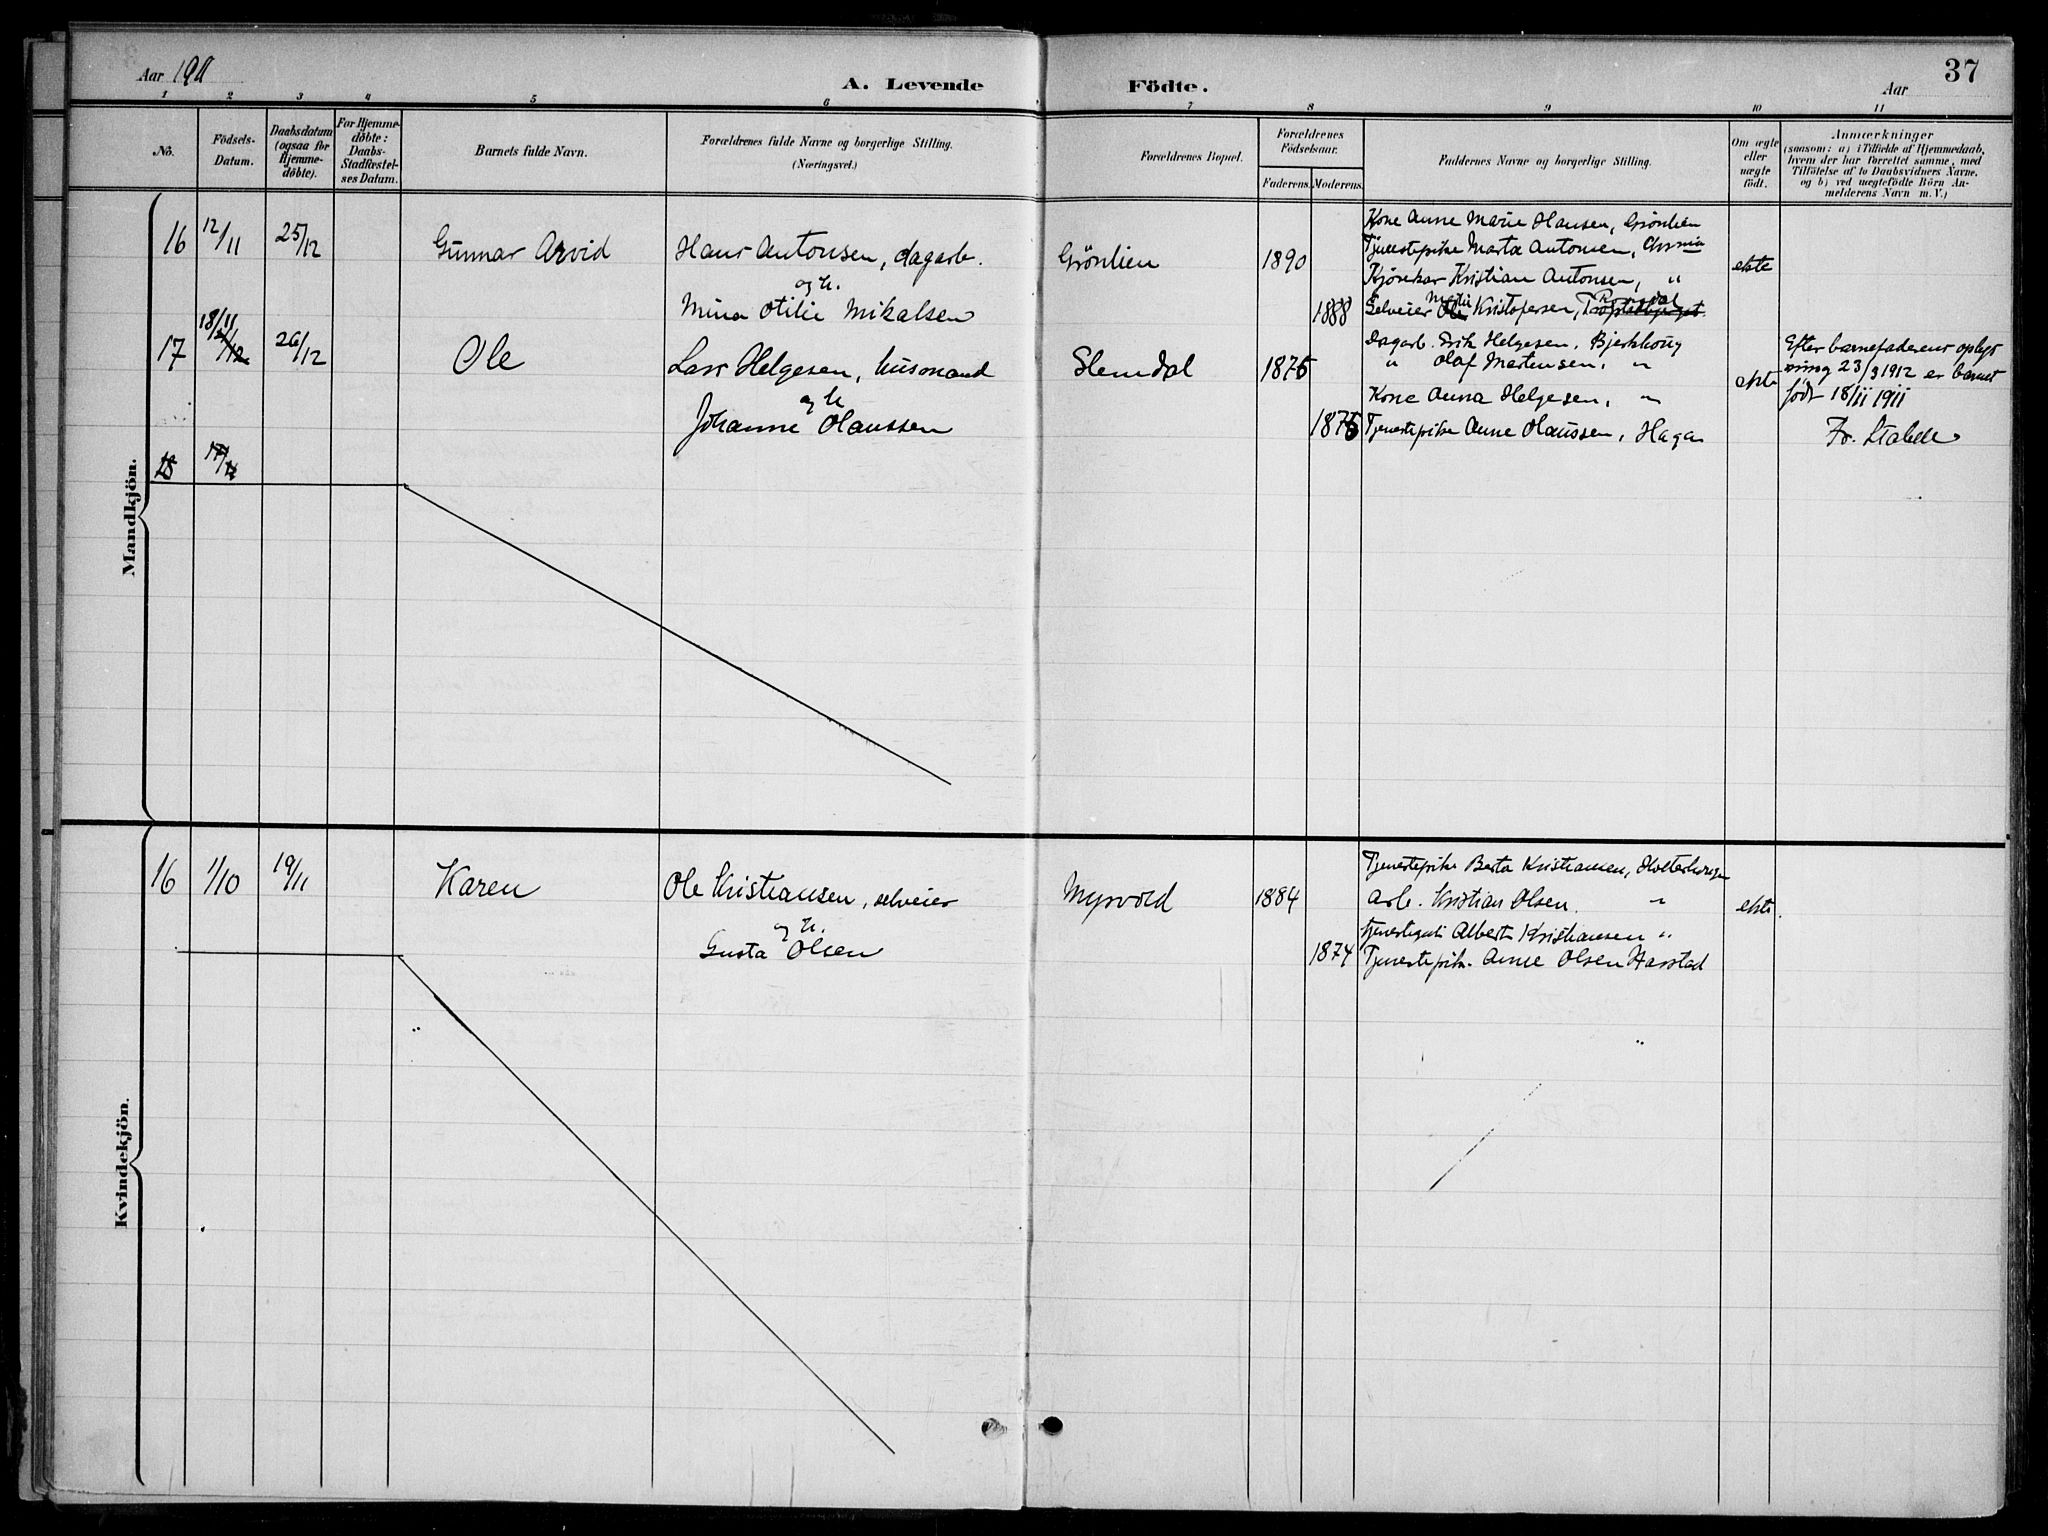 Aar 1911
A. Levende
Födte.
Aar
37
1 2 3 4 5 6 7 8 9 10 11
No.
Födsels-
Datum.
Daabsdatum
(ogsaa for
Hjemme-
döbte).
For Hjemme-
döbte:
Daabs-
Stadfæstel-
ses Datum.
Barnets fulde Navn.
Forældrenes fulde Navne og borgerlige Stilling.
(Næringsvei.)
Forældrenes Bopæl.
Forældrenes
Födselsaar.
Faderens. Moderens.
Faddernes Navne og borgerlige Stilling.
Om ægte
eller
uægte
födt.
Anmærkninger
(saasom: a) i Tilfælde af Hjemmedaab,
hvem der har forrettet samme, med
Tilföielse af to Daabsvidners Navne,
og b) ved uægtefödte Börn An-
melderens Navn m. V.)
Mandkjön.
16 12/11 25/12 Gunnar Arvid
Hans Antonsen, dagarb.
og h.
Mina Otilie Mikalsen
Grönlien
1890
1888
Kone Anne Marie Hansen, Grönlien
Tjenestepike Marta Antonsen, Chrnia
Kjörekar Kristian Antonsen, "
Selveier Martin Kristofersen,
ekte
17 18/11 26/12 Ole
Lars Helgesen, husmand
og h
Johanne Olaussen
Slemdal
1876
1876
Dagarb. Helgesen, Bjerkhoug
" Olaf Martinsen, "
Kone Anna Helgesen, "
Tjenestepike Anne Olaussen, Haga
ekte
Efter barnefaderens oplys
ning 23/3 1912 er barnet
födt 18/11 1911
Fr. Stabel
18 17/12
Kvindekjön.
16 1/10 19/11 Karen
Ole Kristiansen, selveier
og h.
Gusta Olsen
Myrvold
1884
1874
Tjenestepike Berta Kristiansen,
Arb. Kristian Olsen. "
Albert Kristiansen "
Tjenestepik. Anne Olsen Harstad
ekte.